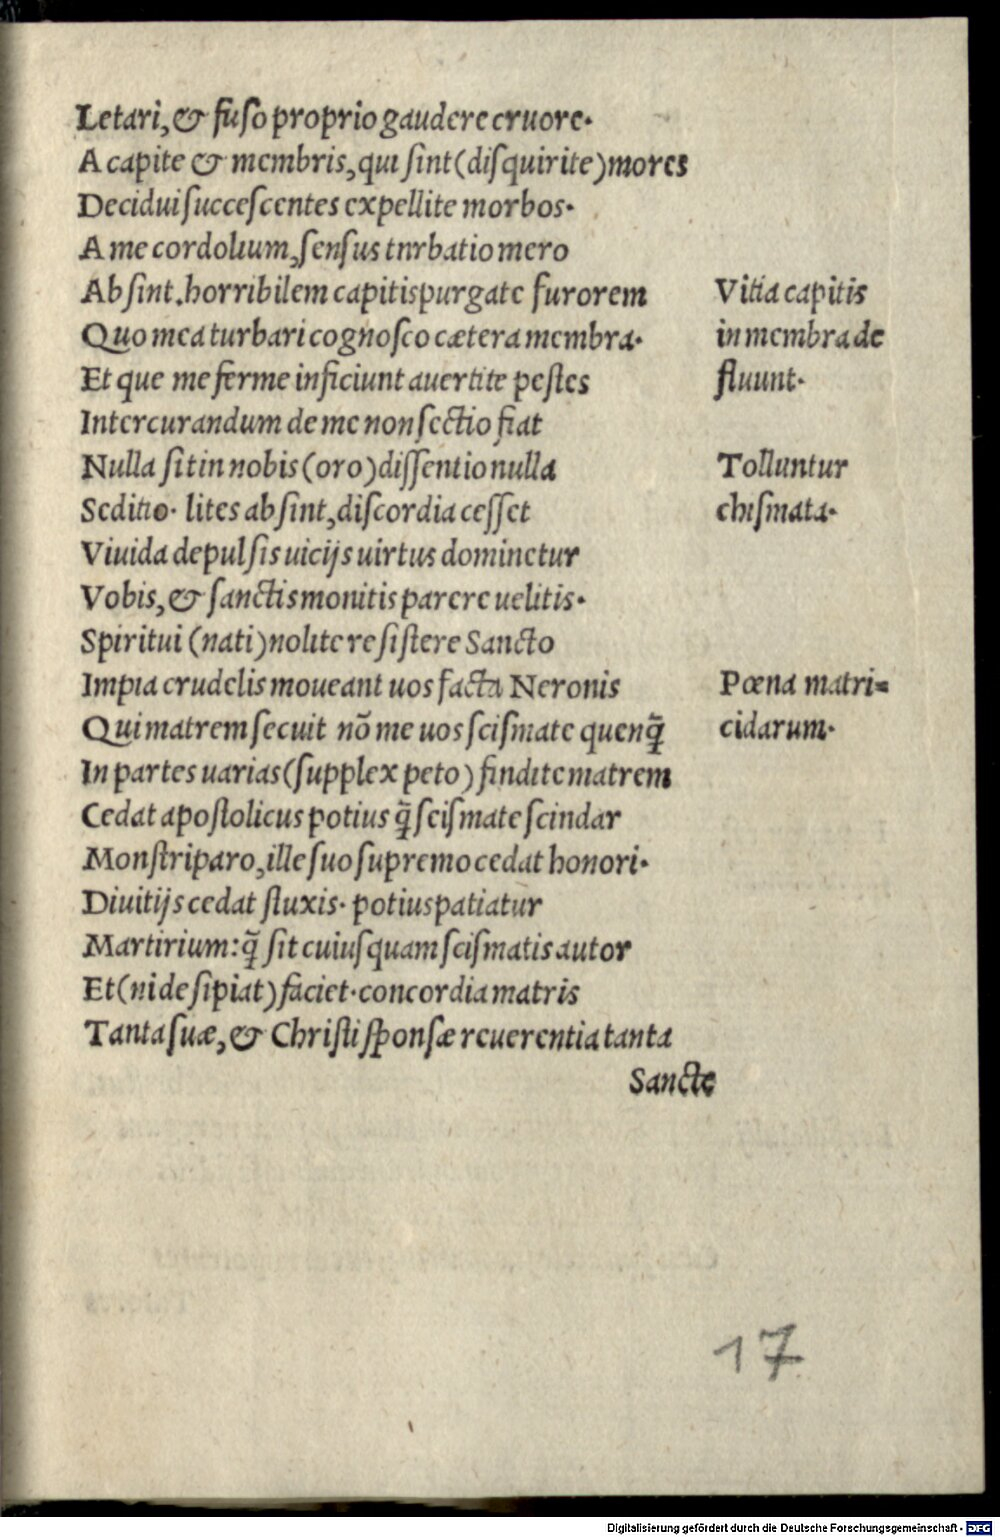 Letari, & fuso proprio gaudere cruore.
A capite & membris, qui sint (disquirite) mores
Decidui succescentes expellite morbos.
A me cordolium, sensus tnrbatio mero
Absint. horribilem capitis purgate furorem
Vitia capitis
Quo mea turbari cognosco cætera membra.
in membra de
Et que me ferme inficiunt auertite pestes
fluunt.
Intercurandum de me non sectio fiat
Nulla sit in nobis (oro) dissentio nulla
Tolluntur
Seditio. lites absint, discordia cesset
chismata.
Viuida depulsis uicijs uirtus dominetur
Vobis, & sanctis monitis parere uelitis.
Spiritui (nati) nolite resistere Sancto
Impia crudelis moueant uos facta Neronis
Pœna matri=
Qui matrem secuit nõ me uos scismate quenq̃
cidarum.
In partes uarias (supplex peto) findite matrem
Cedat apostolicus potius q̃ scismate scindar
Monstriparo, ille suo supremo cedat honori.
Diuitijs cedat fluxis. potius patiatur
Martirium: q̃ sit cuiusquam scismatis autor
Et (ni desipiat) faciet. concordia matris
Tanta suæ, & Christi sponsæ reuerentia tanta
Sancte
17
Digitalisierung gefördert durch die Deutsche Forschungsgemeinschaft - DFG